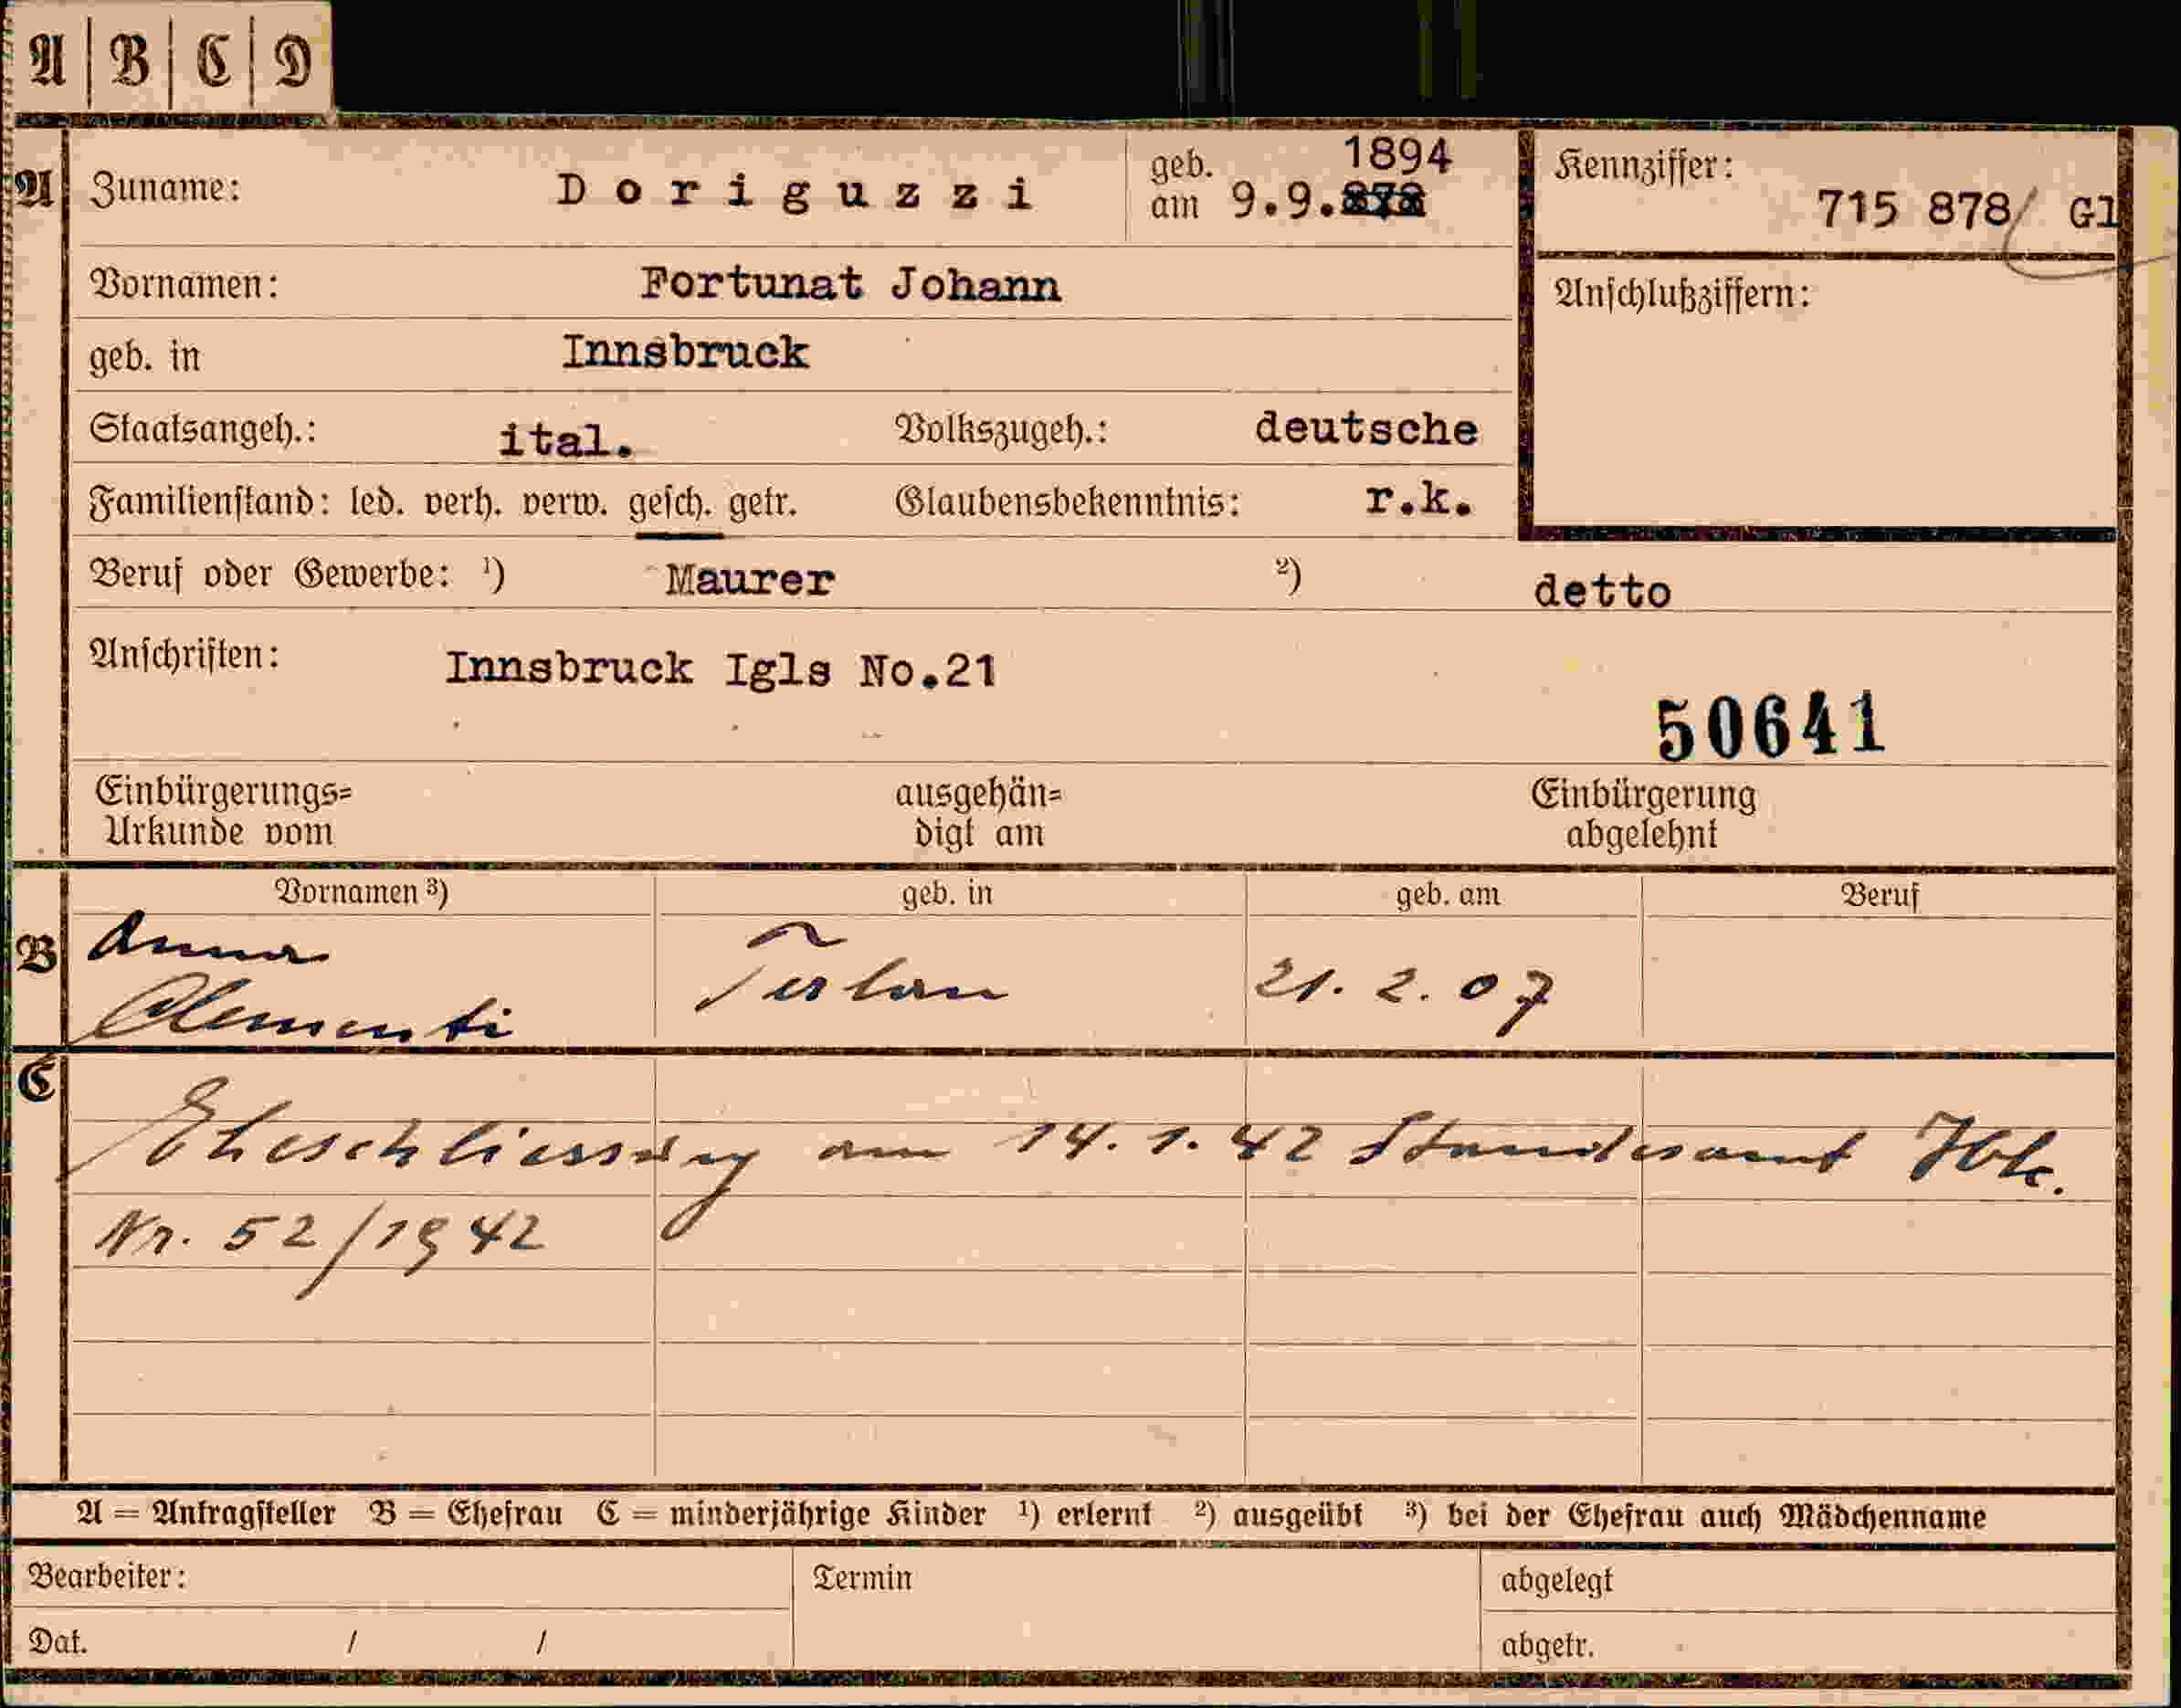 A | B | C | D
A
Zuname: Doriguzzi
geb. am 9.9. 1894
Kennziffer: 715 878/ Gl
Vornamen: Fortunat Johann
Anschlußziffern:
geb. in Innsbruck
Staatsangeh.: ital. Volkszugeh.: deutsche
Familienstand: led. verh. verw. gesch. getr. Glaubensbekenntnis: r.k.
Beruf oder Gewerbe: ¹) Maurer ²) detto
Anschriften: Innsbruck Igls No.21
50641
Einbürgerungs= ausgehän= Einbürgerung
Urkunde vom digt am abgelehnt
Vornamen ³) geb. in geb. am Beruf
B
Anna
Clementi Terlan 21. 2. 07
C
Eheschliessung am 14. 1. 42 Standesamt Ibk.
Nr. 52/1942
A = Antragsteller B = Ehefrau C = minderjährige Kinder ¹) erlernt ²) ausgeübt ³) bei der Ehefrau auch Mädchenname
Bearbeiter: Termin abgelegt
Dat. / / abgetr.